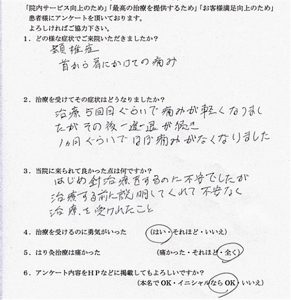 「院内サービス向上のため」「最高の治療を提供するため」「お客様満足向上のため」
患者様にアンケートを頂いております。
よろしければご協力下さい。
1．どの様な症状でご来院いただきましたか？
頚椎症
首から肩にかけての痛み
2．治療を受けてその症状はどうなりましたか？
治療5回目ぐらいで痛みが軽くなりまし
たがその後一進一退が続き
1ヵ月ぐらいでほぼ痛みがなくなりました
3．当院に来られて良かった点は何ですか？
はじめ針治療をするのに不安でしたが
治療する前に説明してくれて不安なく
治療を受けれたこと
4．治療を受けるのに勇気がいった （はい・それほど・いいえ）
5．はり治療は痛かった （痛かった・それほど・全く）
6．アンケート内容をHPなどに掲載してもよろしいですか？
（本名でOK・イニシャルならOK・いいえ）